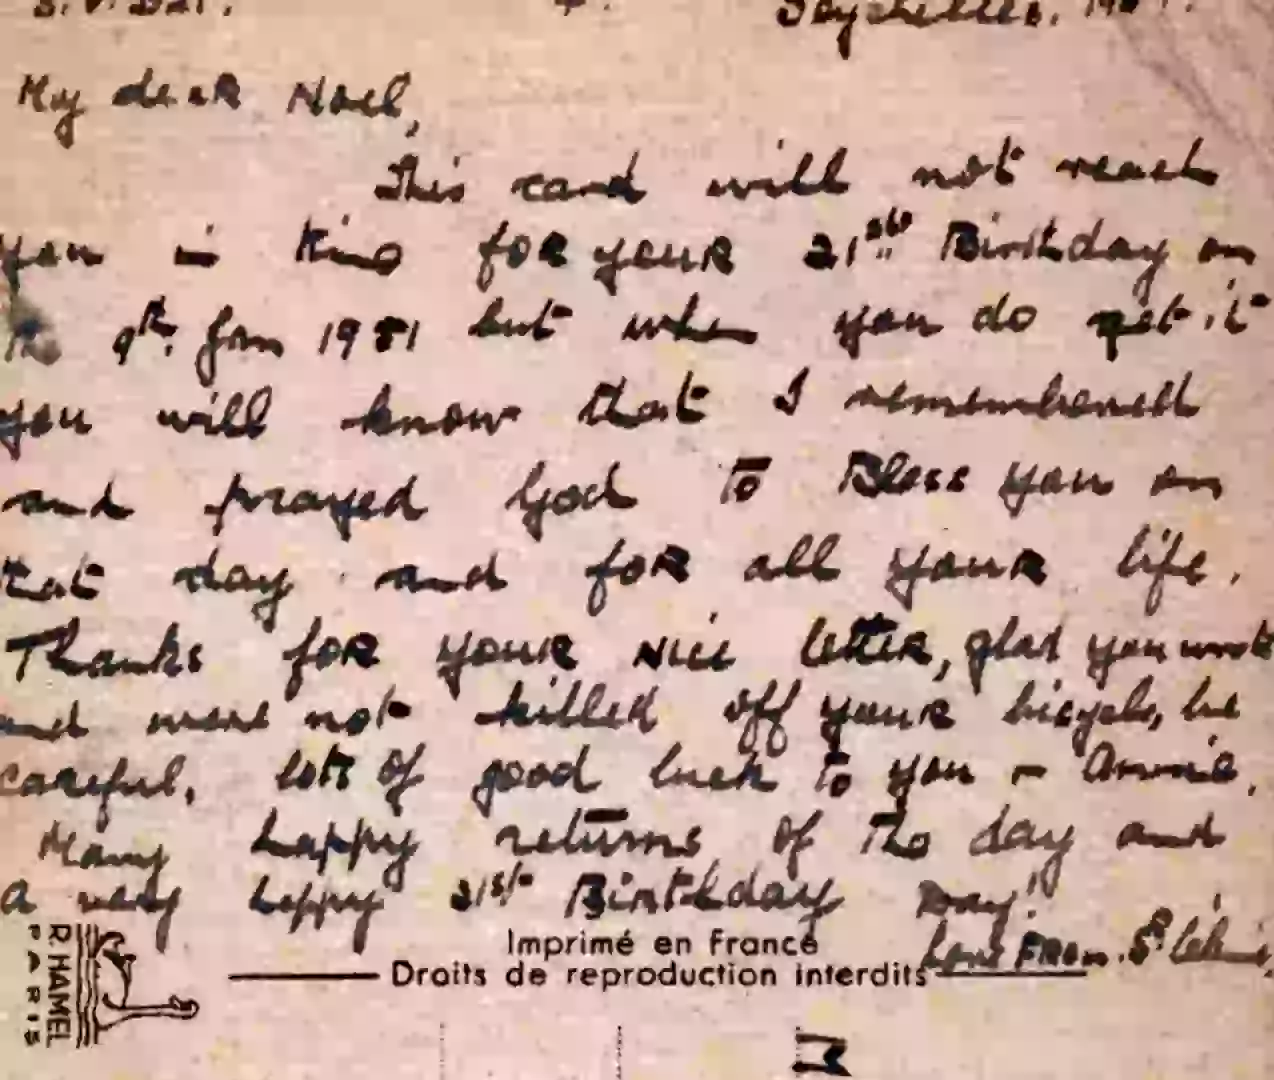 Seychelles.
My dear Noel,
This card will not reach
you in time for your 21st Birthday on
the 9th. Jan 1981 but when you do get it
you will know that I remembered
and prayed God to Bless you on
that day and for all your life.
Thanks for your nice letter, glad you wrote
and were not killed off your bicycle, be
careful, lots of good luck to you - Annie.
Many happy returns of the day and
a very happy 21st Birthday Day!
Love FROM. Sr
Imprimé en France
Droits de reproduction interdits
R. HAMEL
PARIS